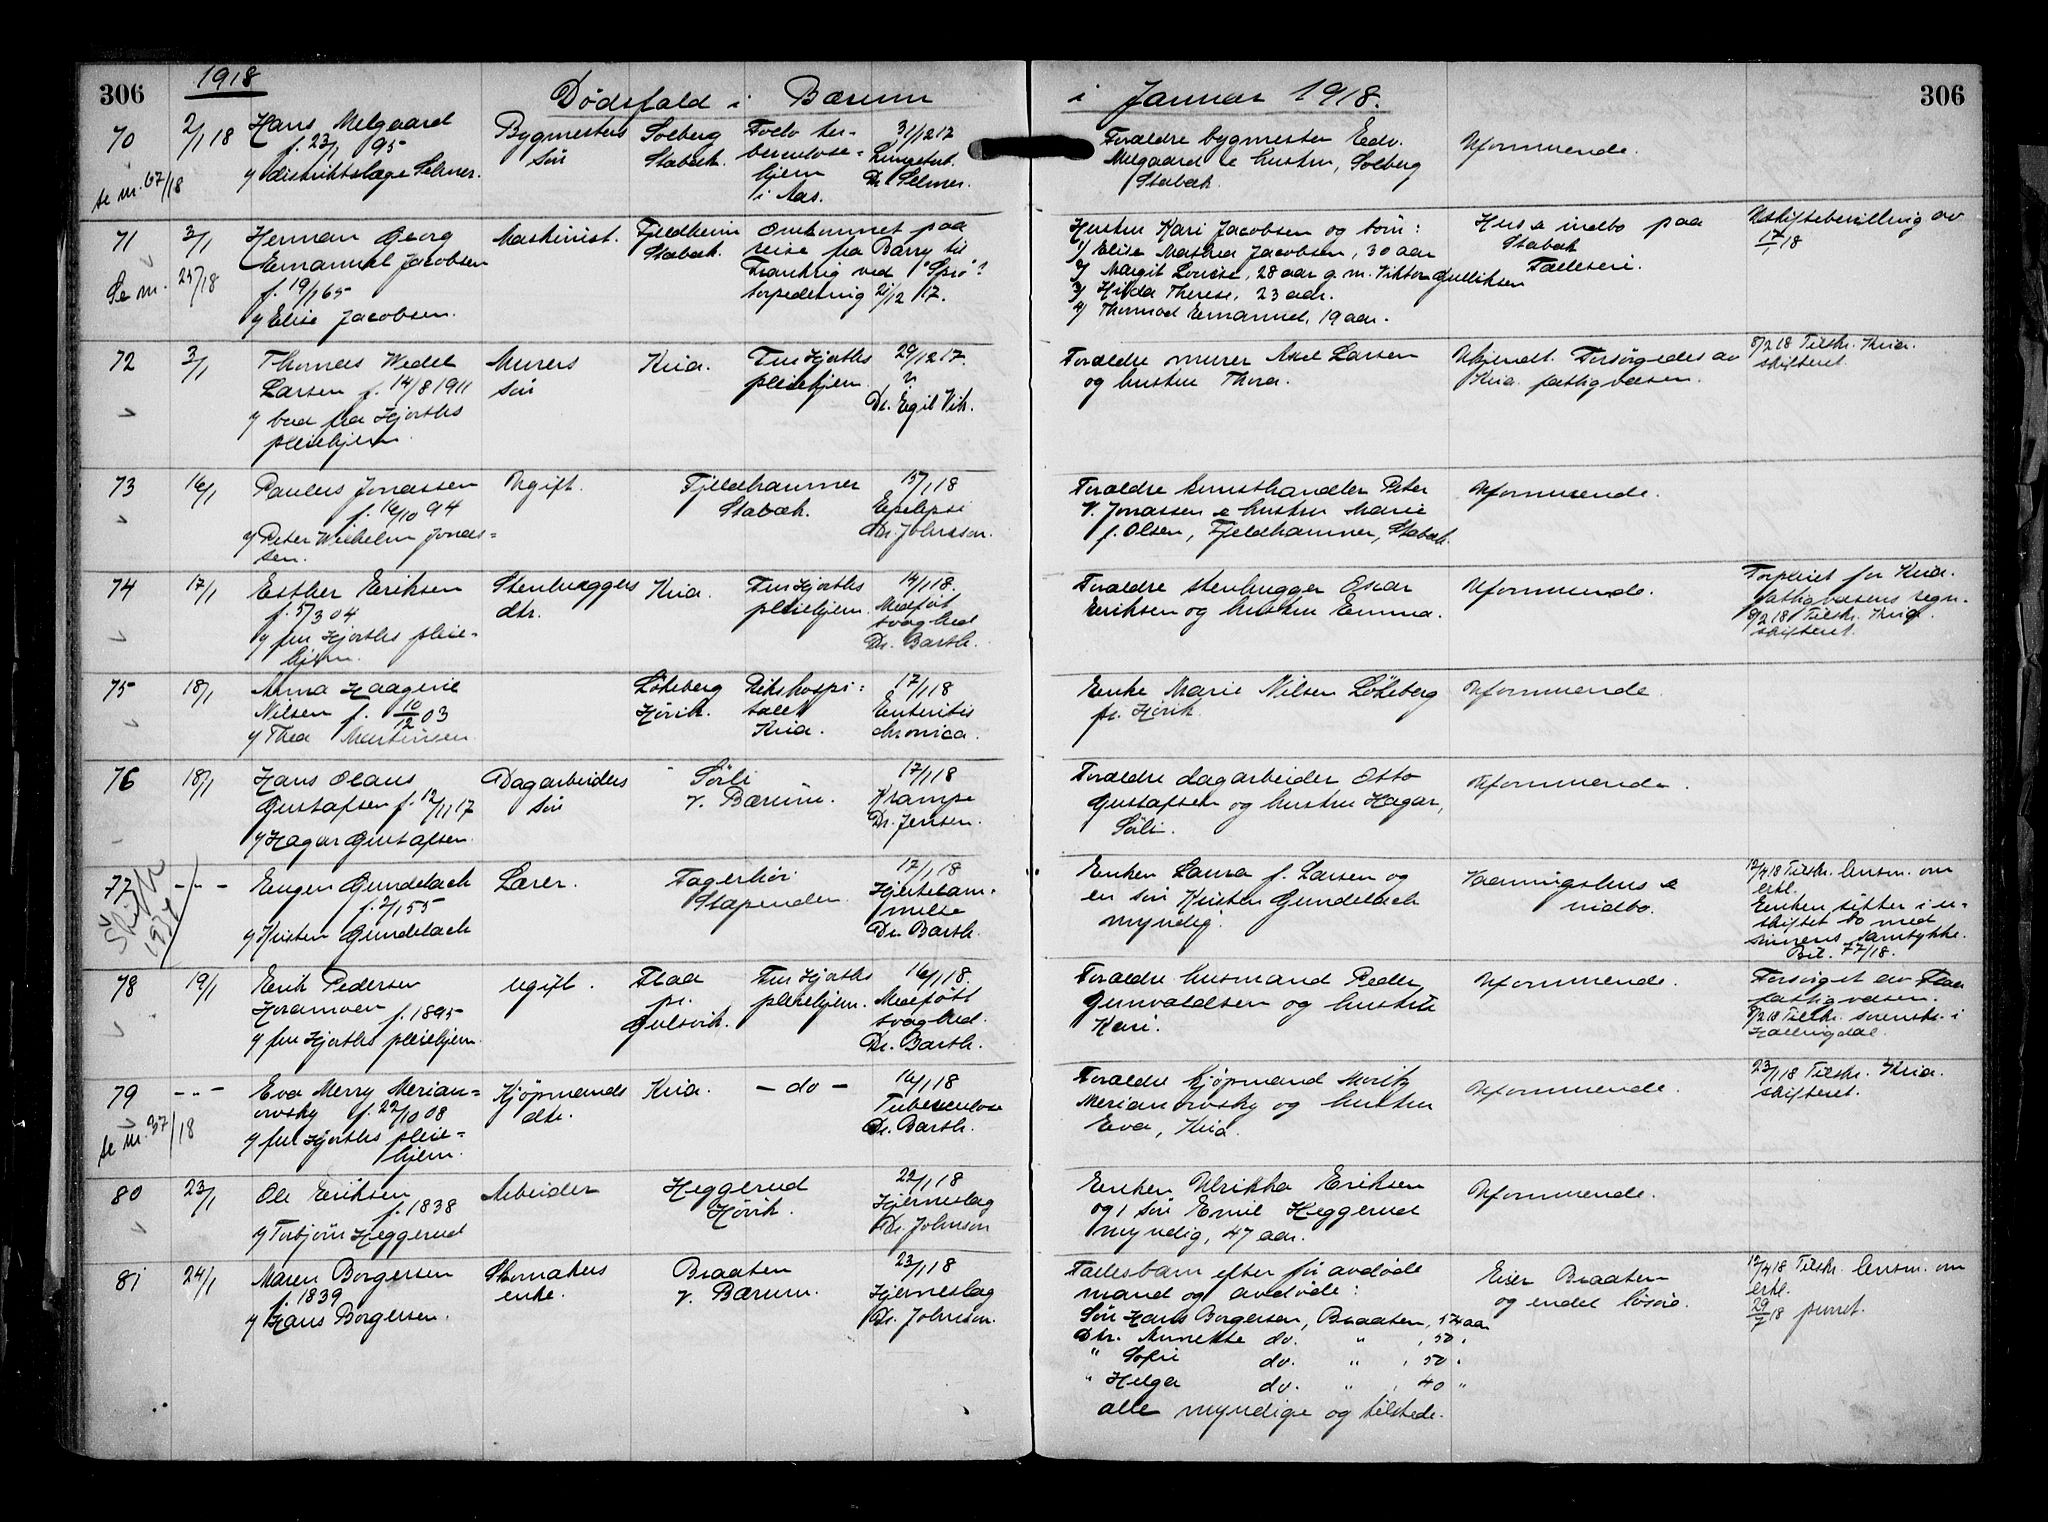 306
1918
Dödsfald i Bærum
i Januar 1918.
306
70
2/1 18
Hans Melgaard
f. 23/1 95
v/ distriktslæge Selmer.
se nr. 67/18
Bygmesters
sön
Solberg
Stabæk.
Tuber-
berculose-
hjem
i Aas.
31/12 17
Lungetub.
Dr. Selmer.
Forældre bygmester Edv.
Melgaard & hustru, Solberg
Stabæk.
Uformuende.
71
3/1
Herman Georg
Emanuel Jacobsen
f. 19/1 65
v/ Elise Jacobsen.
Se nr. 25/18
Maskinist.
Fjeldheim
Stabæk.
Omkommet paa
reise fra Barry til
Frankrig ved "Spro"?
torpedering 21/12 17.
Hustru Kari Jacobsen og börn:
1/ Elise Mathea Jacobsen, 30 aar
2/ Margit Louise, 28 aar g.m. Viktor Gulliksen
3/ Hilda Therese, 23 aar.
4/ Thormod Emanuel, 19 aar.
Hus & indbo paa
Stabæk
Fælleseie.
Uskiftebevilling av
17/1 18
72
3/1
Thomas Wedel
Larsen f. 14/8 1911
v/ bud fra Hjorths
pleiehjem.
Murers
sön
Kria.
Fru Hjorths
pleiehjem.
29/12 17.
Dr. Egil Vik.
Forældre murer Axel Larsen
og hustru Thora.
Ukjendt. Forsørgedes av
Kria. fattigvæsen.
8/2 18 Tilskr. Kria.
skifteret.
73
16/1
Paulus Jonassen
f. 16/10 94
v/ Peter Wilhelm Jonas-
sen.
Ugift.
Fjeldhammer
Stabæk.
15/1 18
Epilepsi
Dr. Johnson.
Forældre kunsthandler Peter
V. Jonassen & hustru Marie
f. Olsen, Fjeldhammer, Stabæk.
Uformuende.
74
17/1
Esther Eriksen
f. 5/3 04
v/ fru Hjorths pleie-
hjem.
Stenhuggers
dtr.
Kria.
Fru Hjorths
pleiehjem.
14/1 18.
Medføt
svaghed
Dr. Barth.
Forældre stenhugger Oscar
Eriksen og hustru Emma.
Uformuende.
Forpleiet for Kria.
fattigvæsens regn.
8/2 18 Tilskr. Kria
skifteret.
75
18/1
Anna Haagine
Nilsen f. 10/12 03
v/ Thea Martinsen
Lökeberg
Hövik.
Rikshospi-
talet
Kria.
17/1 18
Enteritis
chronica.
Enke Marie Nilsen Lökeberg
pr. Hövik.
Uformuende.
76
18/1
Hans Olaus
Gustafsen f. 12/11 17
v/ Hagar Gustafsen.
Dagarbeiders
sön
Sörli
V. Bærum.
17/1 18
Krampe
Dr. Jensen.
Forældre dagarbeider Otto
Gustafsen og hustru Hagar,
Sörli.
Uformuende.
77
Skifte
- " -
Eugen Gundelach
f. 2/1 55
v/ Kristen Gundelach
Lærer.
Fagerliv
Slependen.
17/1 18
Hjertelam-
melse
Dr. Barth.
Enken Laura f. Larsen og
en sön Kristen Gundelach
myndig.
Vaaningshus &
indbo.
12/4 18 Tilskr. lensm. om
erkl.
Enken sitter i u-
skiftet bo med
sönnens samtykke.
Bil. 77/18.
78
19/1
Erik Pedersen
Horamoen f. 1895
v/ fru Hjorths pleiehjem.
ugift.
Flaa
pr.
Gulsvik.
Fru Hjorths
pleiehjem.
16/1 18.
Medfött
svaghed.
Dr. Barth.
Forældre husmand Peder
Gunvaldsen og hustru
Kari.
Uformuende.
Forsörget av Flaa
fattigvæsen.
8/2 18 Tilskr. sorenskr. i
Hallingdal.
79
- " -
Eva Merry Merian-
ovsky f. 22/10 08
v/ fru Hjorths pleie-
hjem.
se nr. 37/18
Kjöpmands
dtr.
Kria.
- do -
16/1 18
Tuberculose
Dr. Barth.
Forældre kjöpmand Moritz
Merianovsky og hustru
Eva, Kria.
Uformuende.
23/1 18 Tilskr. Kria.
skifteret.
80
23/1
Ole Eriksen
f. 1838
v/ Torbjörn Heggerud
Arbeider
Heggerud
Hövik.
22/1 18
Hjerneslag
Dr. Johnson
Enken Ulrikka Eriksen
og 1 sön Emil Heggerud
myndig, 47 aar.
Uformuende.
81
24/1
Maren Borgersen
f. 1839
v/ Hans Borgersen.
Skomakers
enke.
Braaten
V. Bærum.
23/1 18
Hjerneslag
Dr. Johnson.
Fællesbarn efter för avdöde
mand og avdöde:
Sön Hans Borgersen, Braaten, 54 aar
Dtr. Annette do. " , 52 "
" Sofie do. " , 50 "
" Helga do. " , 40 "
alle myndige og tilstede.
Eier Braaten
og endel lösöre.
12/4 18 Tilskr. lensm. om
erkl.
29/7 18 purret.